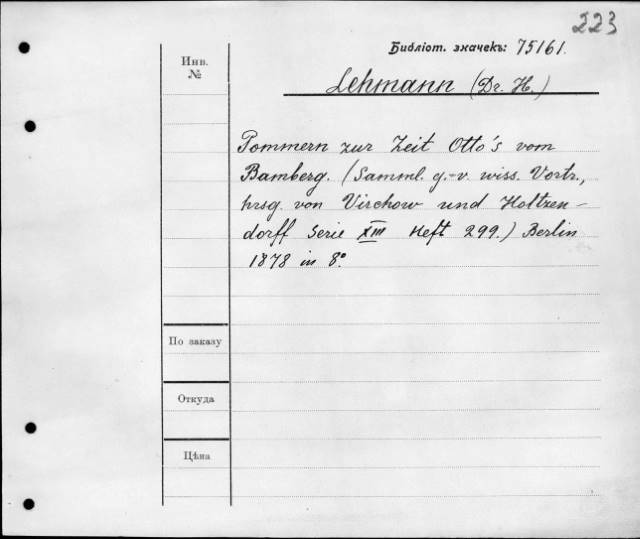 223
Библіот. значекъ: 75161.
Инв.
№
Lehmann (Dr. H.)
Pommern zur Zeit Otto's vom
Bamberg. (Samml. g.-v. wiss. Vortr.,
hrsg. von Virchow und Holtzen-
dorff Serie XIII Heft 299.) Berlin
1878 in 8°.
По заказу
Откуда
Цѣна